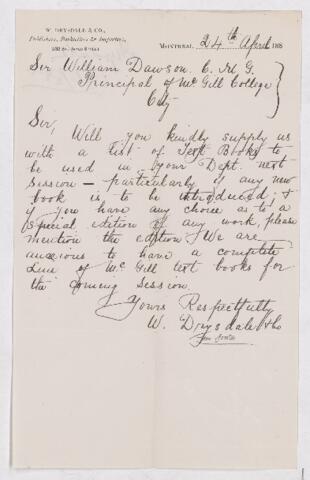 W. DRYSDALE & CO.,
Publishers, Booksellers & Importers,
MONTREAL, 24th April 188
Sir William Dawson. C. M. G.
Principal of Mc Gill College
City
Sir,
Will you kindly supply us
with a list of Text Books to
be used in your Dept. next
Session – particularly if any new
book is to be introduced; &
if you have any choice as to a
special edition of any work, please
mention the edition. We are
anxious to have a complete
Line of Mc Gill text books for
the coming Session.
Yours Respectfully
W. Drysdale & Co